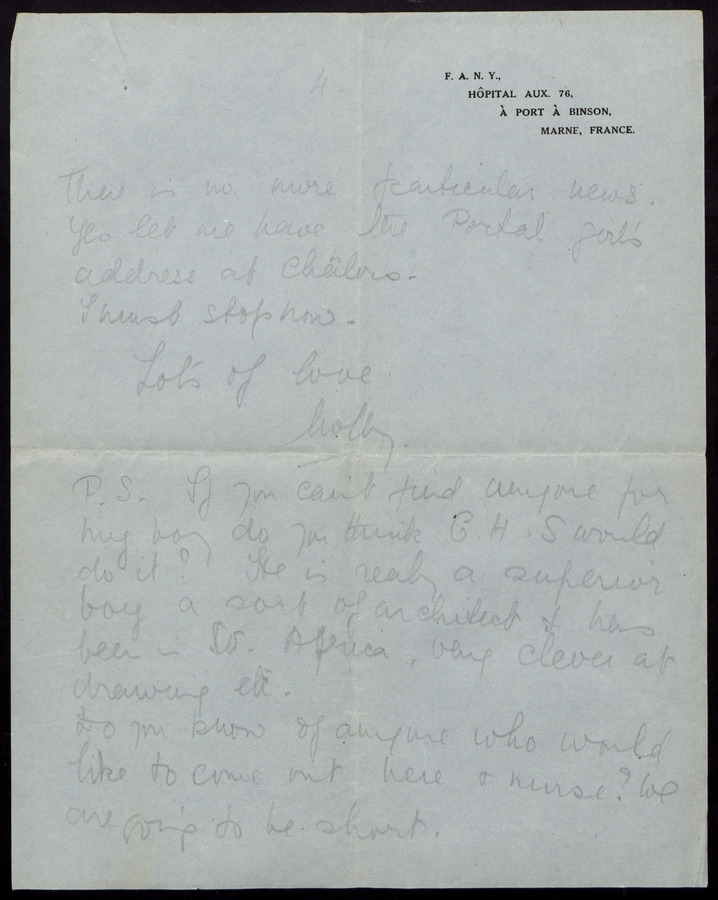 4.
F. A. N. Y.,
HÔPITAL AUX. 76,
À PORT À BINSON,
MARNE, FRANCE.
There is no more particular news.
Yes let me have the Portal girl's
address at Châlons -
I must stop now -
Lots of love
Molly.
P. S. If you can't find anyone for
my boy do you think G. H. S would
do it? He is really a superior
boy a sort of architect & has
been in S. Africa, very clever at
drawing etc.
Do you know of anyone who would
like to come out here & nurse? We
are going to be short.